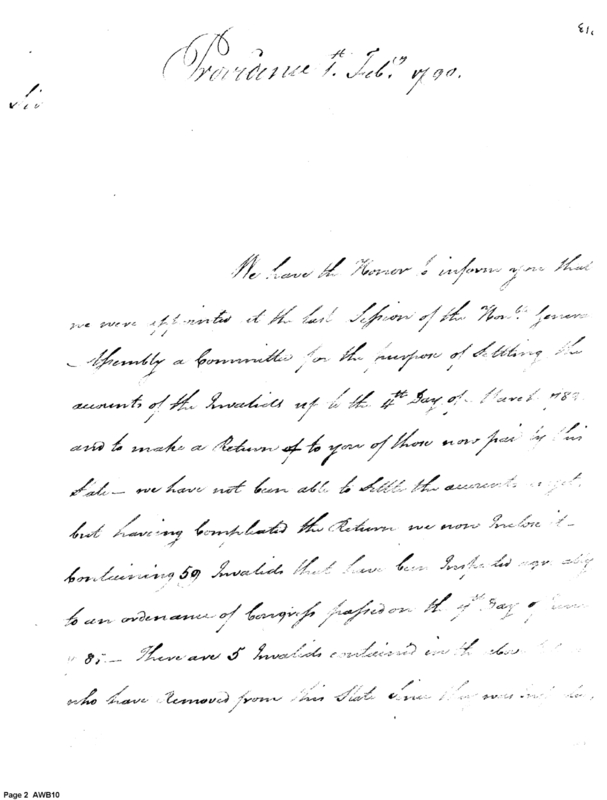 Providence 1st. Feby. 1790.
Sir
We have the Honor to inform you that
we were appointed at the last Session of the Honbl. General
Assembly a Committee for the purpose of Settling the
accounts of the Invalids up to the 4th Day of March 1789
and to make a Return of to you of those now paid by this
State — we have not been able to Settle the accounts as yet
but haveing Compleated the Return we now Inclose it —
Containing 59 Invalids that have been Inspected agreeably
to an ordenance of Congress passed on the 7th Day of June
85 — There are 5 Invalids contained in the above
who have Removed from this State Since they was
Page 2 AWB10